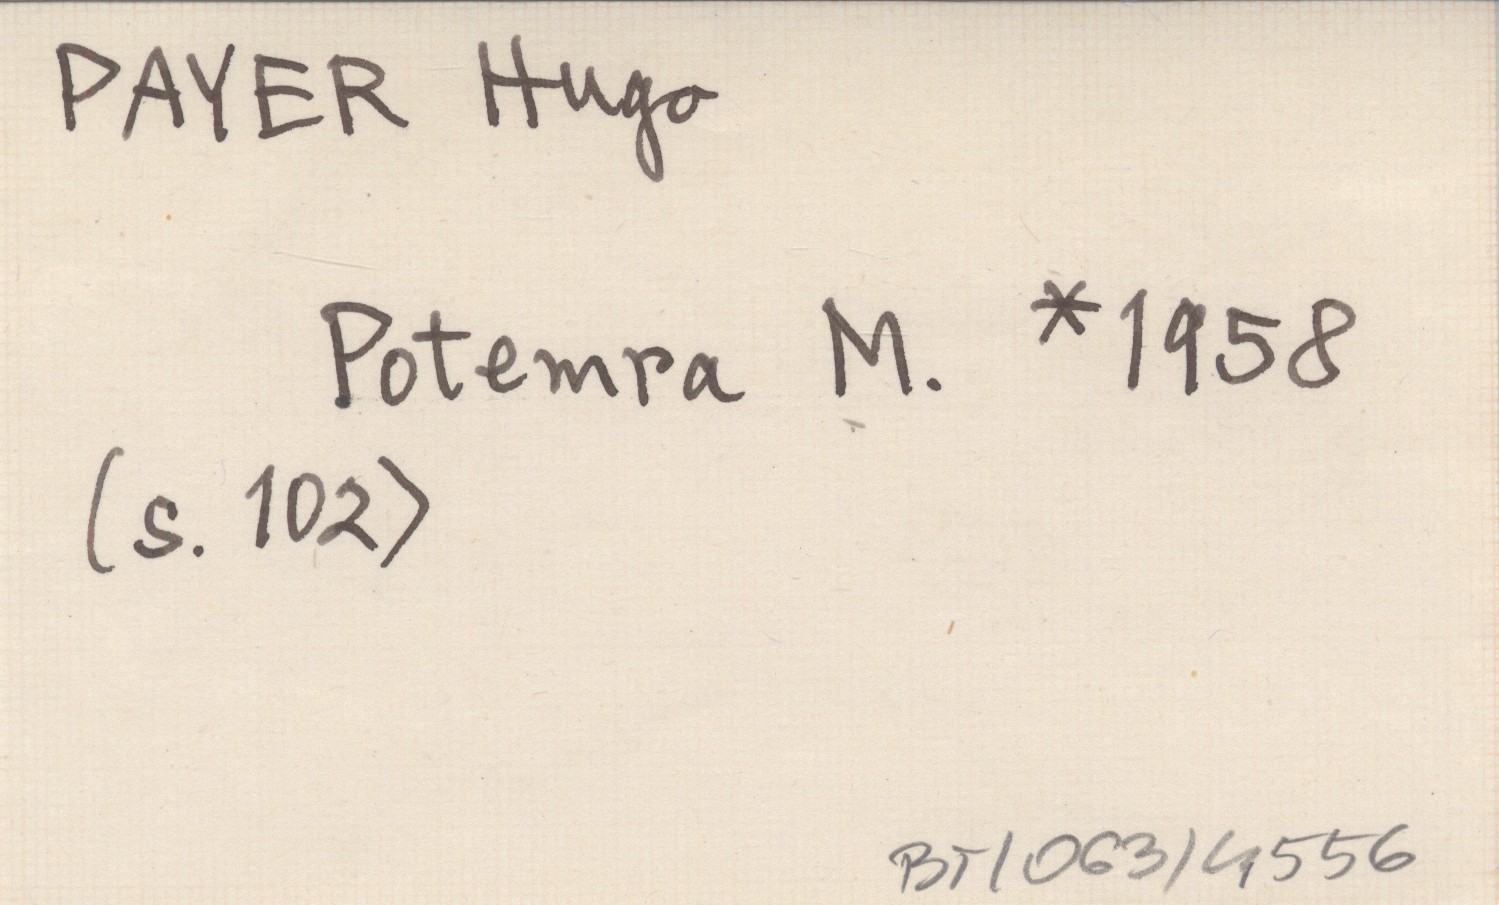 PAYER Hugo
Potemra M. *1958
(s. 102)
BT/063/4556